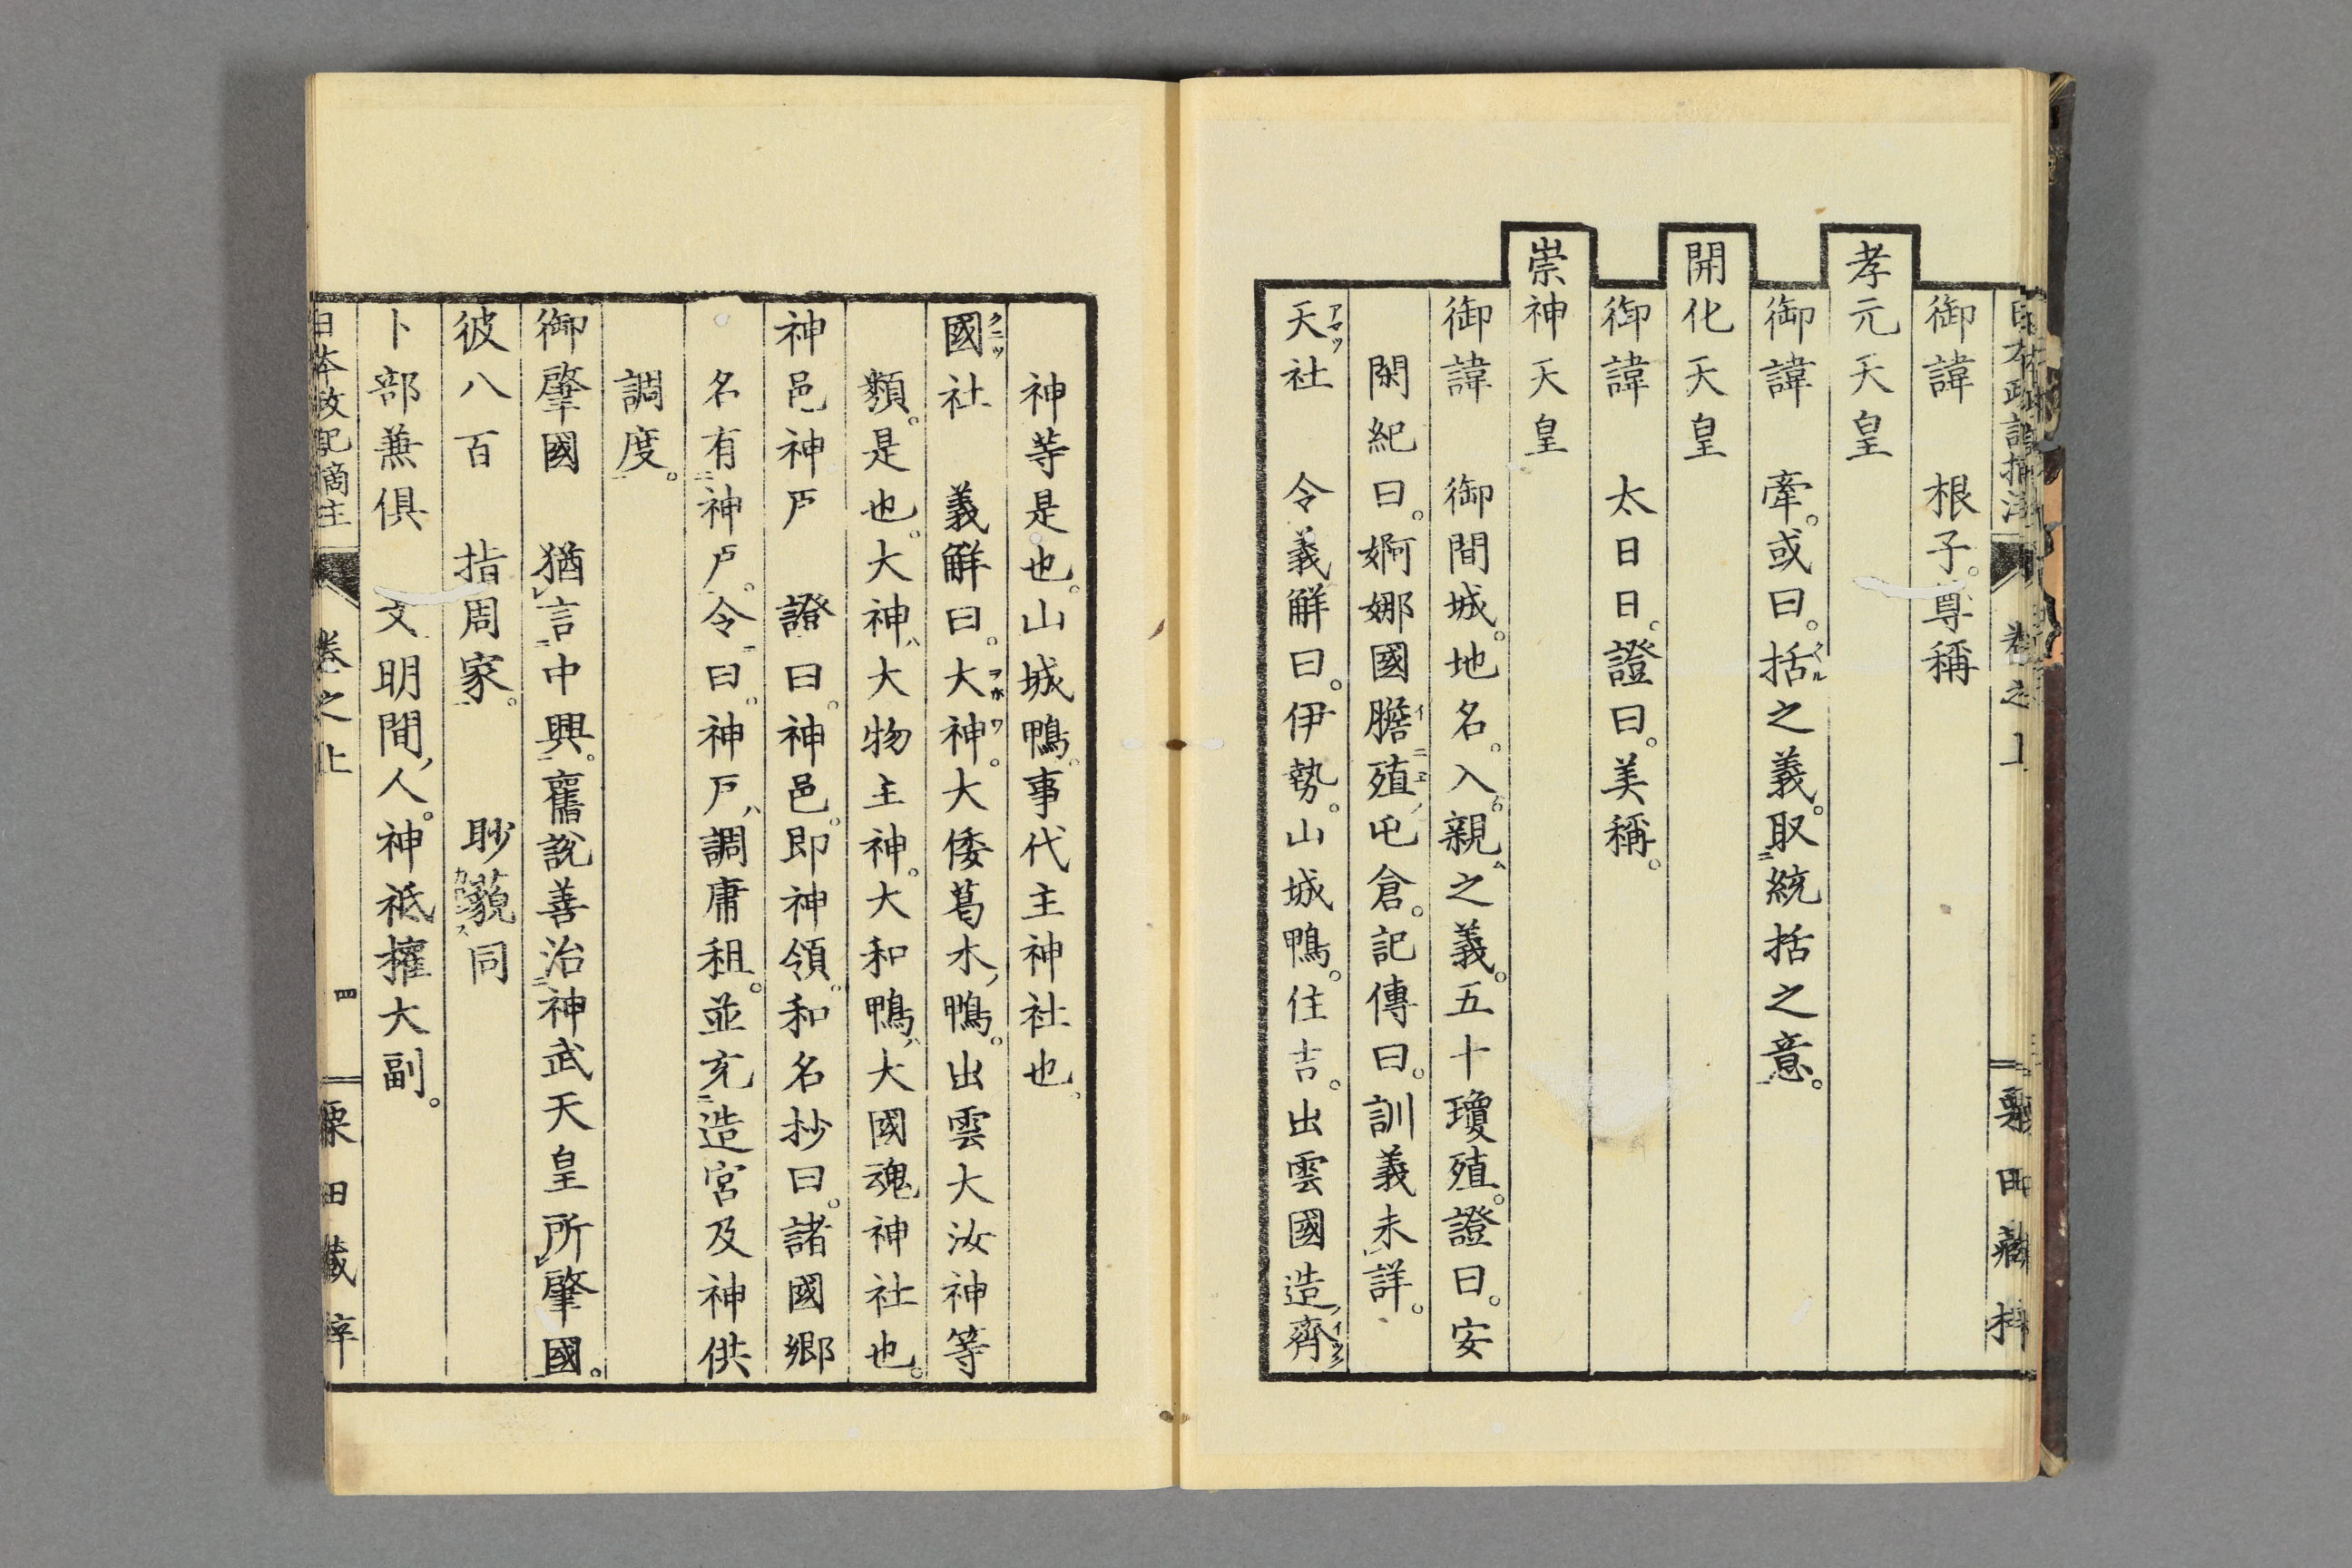 日本政記摘注 卷之上 栗田藏梓
御諱 根子。尊稱
孝元天皇
御諱 牽。或曰。括之義。取統括之意。
開化天皇
御諱 太日日。證曰。美稱。
崇神天皇
御諱 御間城。地名。入。親之義。五十瓊殖。證曰。安
閑紀曰。婀娜國膽殖屯倉。記傳曰。訓義未詳。
天社 令義解曰。伊勢。山城鴨。住吉。出雲國造齊
神等是也。山城鴨。事代主神社也。
國社 義解曰。大神。大倭葛木鴨。出雲大汝神等
類。是也。大神大物主神。大和鴨大國魂神社也。
神邑神戸 證曰。神邑。即神領。和名抄曰。諸國鄉
名有神戸。令曰。神戸調庸租。並充造宮及神供
調度。
御肇國 猶言中興。舊說善治神武天皇所肇國。
彼八百 指周家。 眇藐同
卜部兼俱 文明間人。神祗權大副。
日本政記摘注 卷之上 四 栗田藏梓